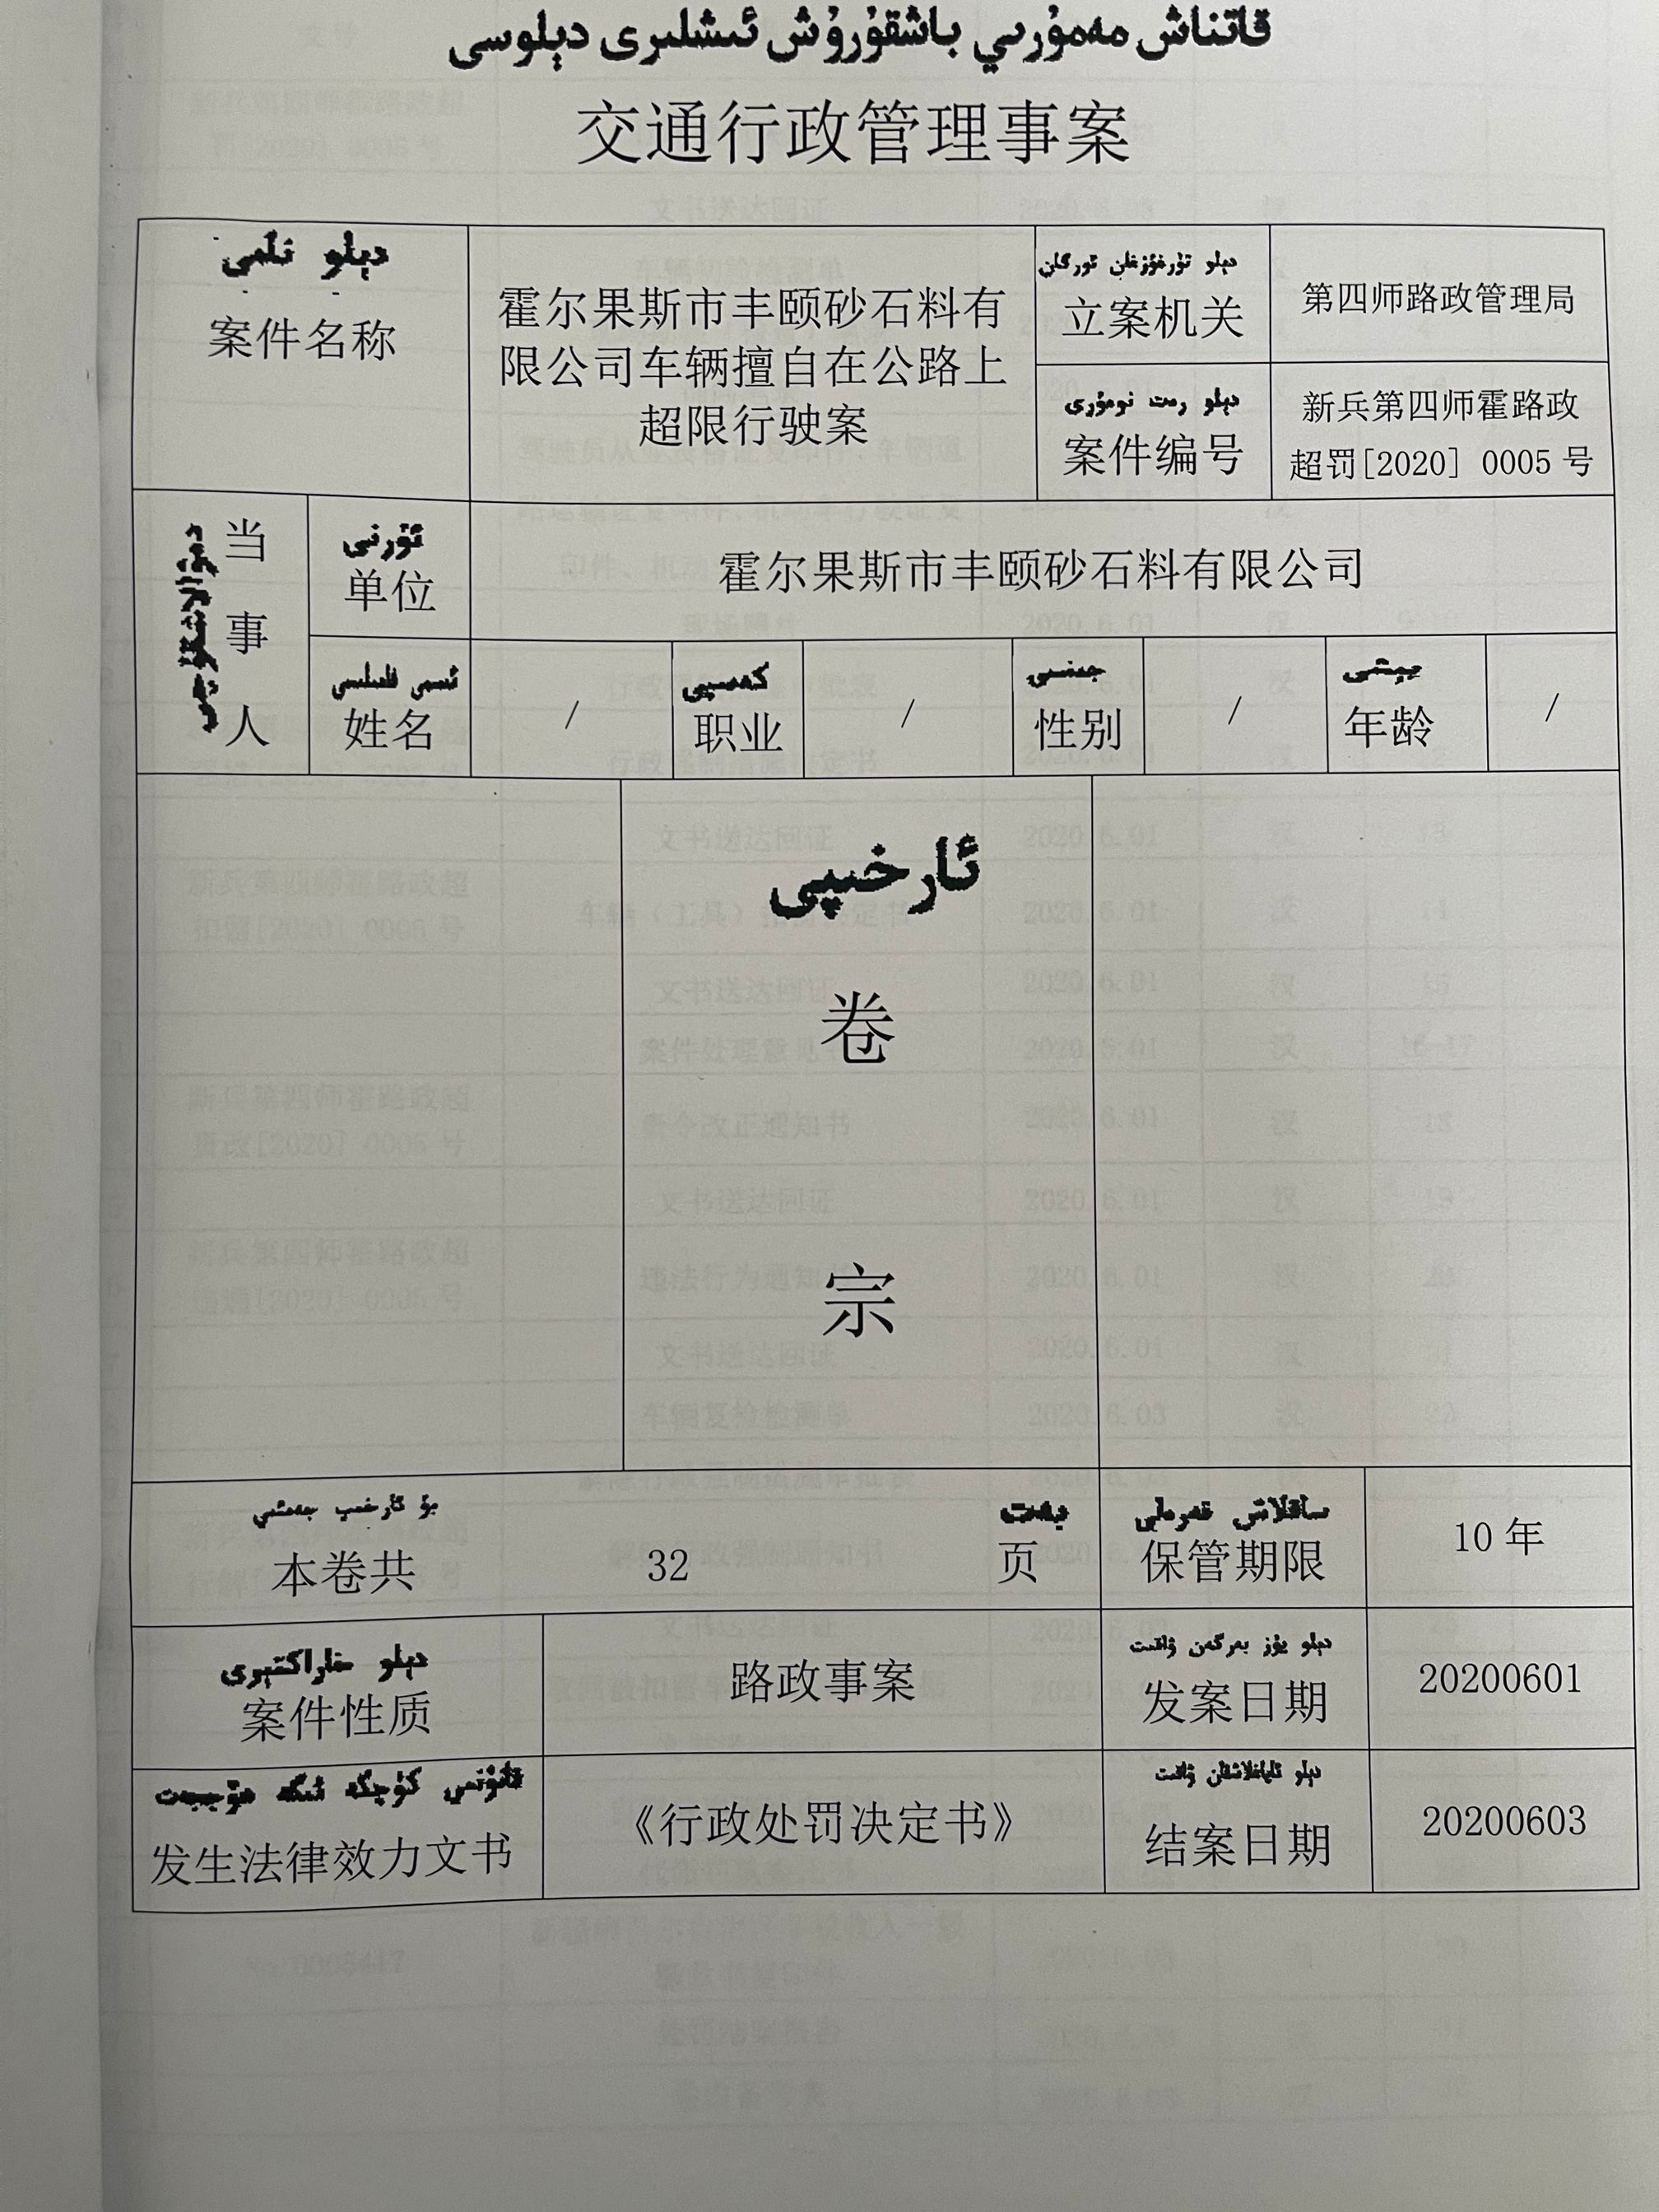 قاتناش مەمۇرىي باشقۇرۇش ئىشلىرى دېلوسى
交通行政管理事案
دېلو نامى
案件名称
霍尔果斯市丰颐砂石料有
限公司车辆擅自在公路上
超限行驶案
دېلو تۇرغۇزغان ئورگان
立案机关
第四师路政管理局
دېلو رەت نومۇرى
案件编号
新兵第四师霍路政
超罚[2020] 0005 号
当
事
人
ئورنى
单位
霍尔果斯市丰颐砂石料有限公司
ئىسمى فامىلىسى
姓名
/
كەسپى
职业
/
جىنسى
性别
/
يېشى
年龄
/
ئارخىپى
卷
宗
بۇ ئارخىپ جەمئىي
本卷共
32
بەت
页
ساقلاش قەرەلى
保管期限
10 年
دېلو خاراكتېرى
案件性质
路政事案
دېلو يۈز بەرگەن ۋاقىت
发案日期
20200601
قانۇنىي كۈچكە ئىگە ھۆججەت
发生法律效力文书
《行政处罚决定书》
دېلو ئاياغلاشقان ۋاقىت
结案日期
20200603